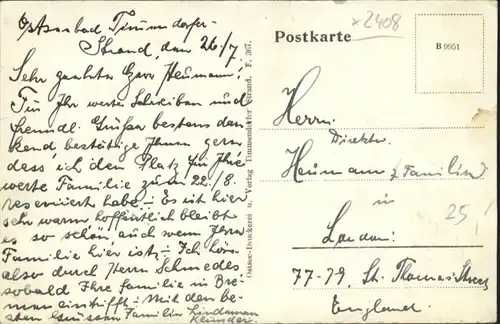 Ostseebad Timmendorfer-
Strand, den 26/7
Sehr geehrter Herr Heumann!
Für Ihr wertes Schreiben und
freundl. Grüße bestens dan
kend, bestätige Ihnen gern,
dass ich den Platz für Ihre
werte Familie zum 22/8.
reserviert habe. - Es ist hier
sehr warm hoffentlich bleibt
es so schön, auch wenn Ihre
Familie hier ist. - Ich höre
also durch Herrn Schmedes
sobald Ihre Familie in Bre-
men eintrifft. Mit den be-
sten Grüssen Familie Lindemann
Ostsee-Druckerei u. Verlag Timmendorfer Strand. F. 367.
x2408
Postkarte
B 9951
Herrn
Direktor
Heumann & Familie
in
London
77-79, St. Thomas Street
England
25,